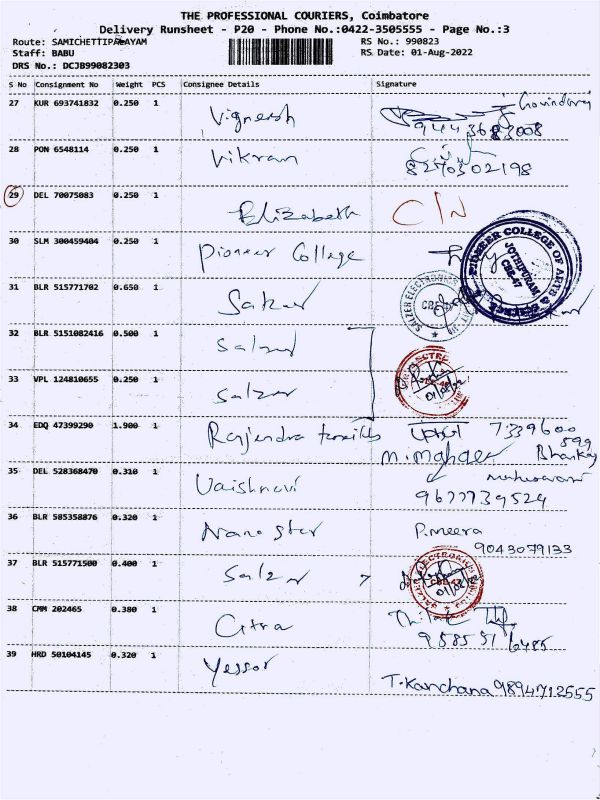 THE PROFESSIONAL COURIERS, Coimbatore
Delivery Runsheet - P20 - Phone No.:0422-3505555 - Page No.:3
Route: SAMICHETTIPALAYAM RS No.: 990823
Staff: BABU RS Date: 01-Aug-2022
DRS No.: DCJB99082303
S No Consignment No Weight PCS Consignee Details Signature
27 KUR 693741832 0.250 1 Vignesh Govindaraj
9443683008
28 PON 6548114 0.250 1 Vikram
8270302198
29 DEL 70075083 0.250 1 Elizabeth C/N
30 SLM 300459404 0.250 1 Pioneer College
PIONEER COLLEGE OF ARTS & SCIENCE
JOTHIPURAM
CBE-47
31 BLR 515771702 0.650 1 Salzer
SALZER ELECTRONICS
32 BLR 5151082416 0.500 1 Salzer
33 VPL 124810655 0.250 1 Salzer
34 EDQ 47399290 1.900 1 Rajendra 7339600
899
35 DEL 528368470 0.310 1 Vaishnavi
9677739524
36 BLR 585358876 0.320 1 Nano Star P.meera
9043079133
37 BLR 515771500 0.400 1 Salzer
SALZER ELECTRONICS
38 CMM 202465 0.380 1 Citra
95855 6485
39 HRD 50104145 0.320 1 Yessor
T.Kanchana 9894712555